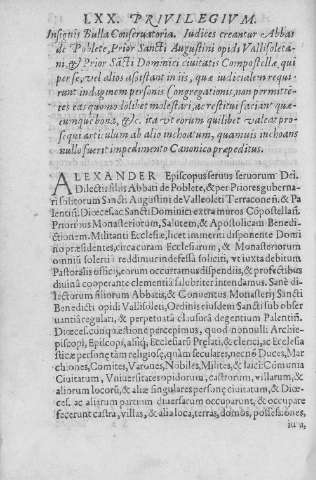 LXX. PRIVILEGIVM.
Insignis Bulla Conseruatoria. Iudices creantur Abbas
de Poblete, Prior Sancti Augustini opidi Vallisoleta-
ni, & Prior Sãcti Dominici ciuitatis Compostellæ, qui
per se, vel alios assistant in iis, quæ iudicialem requi-
runt indaginem personis Congregationis, non permittẽ-
tes eas quomolibet molestari, ac restitui faciant quæ-
cunque bona, &c. ita vt eorum quilibet valeat pro-
sequi articulum ab alio inchoatum, quamuis inchoans
nullo fuerit impedimento Canonico præpeditus.
ALEXANDER Episcopus seruus seruorum Dei.
Dilectis filiis Abbati de Poblete, & per Priores guberna-
ri solitorum Sancti Augustini de Valleoleti Terraconeñ. & Pa
lentiñ. Diœces. ac Sancti Dominici extra muros Cõpostellañ.
Prioribus Monasteriorum, Salutem, & Apostolicam Benedi-
ctionem. Militanti Ecclesiæ, licet immeriti disponente Domi
no præsidentes, circa curam Ecclesiarum, & Monasteriorum
omniũ solerti a reddimur indefessa soliciti, vt iuxta debitum
Pastoralis officij, eorum occurramus dispendiis, & profectibus
diuina cooperante clementia salubriter intendamus. Sanè di-
lectorum filiorum Abbatis, & Conuentus Monasterij Sancti
Benedicti opidi Vallisoleti, Ordinis eiusdem Sancti sub obser
uantia regulari, & perpetua clausura degentium Palentiñ.
Diœces. conquæstione percepimus, quod nonnulli Archie-
piscopi, Episcopi, aliiq; Ecclesiarũ Prelati, & clerici, ac Ecclesia
sticæ personę tam religiosę, quàm seculares, necnõ Duces, Mar
chiones, Comites, Varones, Nobiles, Milites, & laici: Cõmunia
Ciuitatum, Vniuersitates opidorum, castrorum, villarum, &
aliorum locorũ, & aliæ singulares personę ciuitatum, & Diœ-
ces. ac aliarum partium diuersarum occuparunt, & occupare
fecerunt castra, villas, & alia loca, terras, domos, possessiones,
iura,